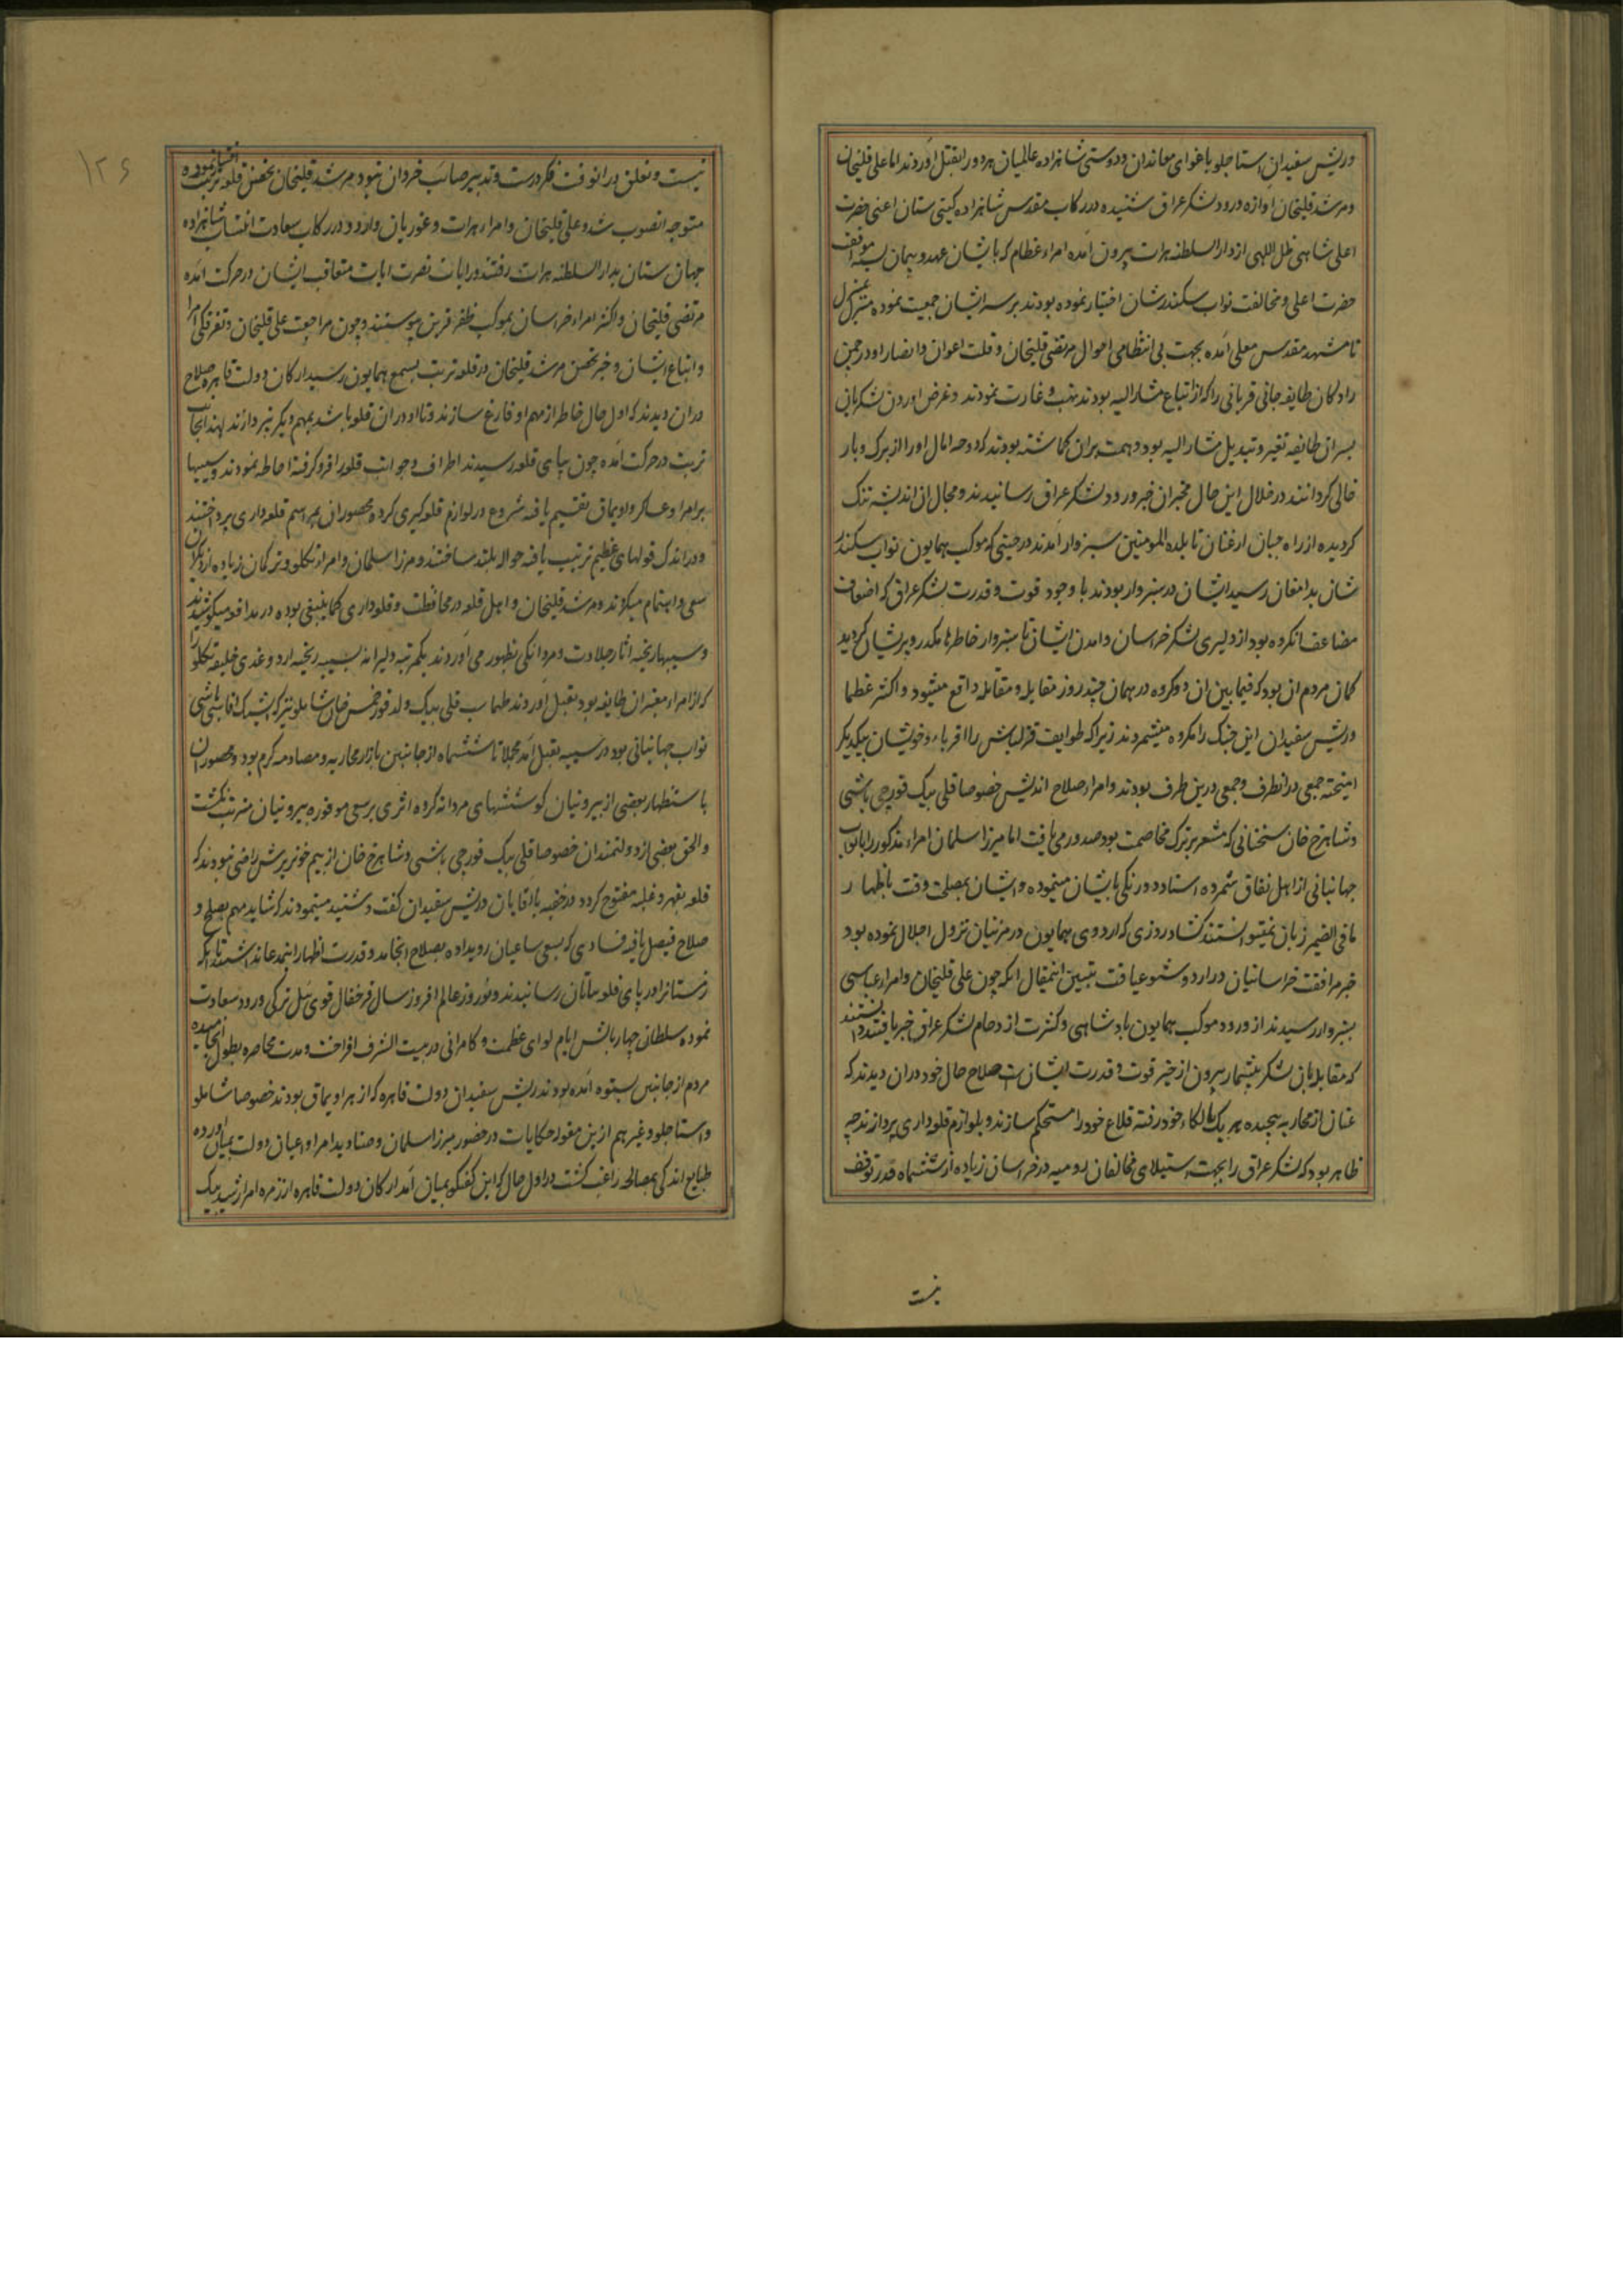 و ریش سفیدان استاجلو باغوای معاندان و دوستی شاهزاده عالمیان هر دو را بقتل آوردند اما علی قلیخان
و مرشد قلیخان اوازه ورود لشکر عراق شنیده در رکاب مقدس شاهزاده کیتی ستان اعنی حضرت
اعلی شاهی ظل اللهی از دار السلطنه هرات بیرون آمده امراء عظام که با ایشان عهد و پیمان بسته موافقت
حضرت اعلی و مخالفت نواب سکندرشان اختیار نموده بودند بر سر ایشان جمعیت نموده منزل بمنزل
تا مشهد مقدس معلی آمده بجهت بی انتظامی احوال مرتضی قلیخان و قلت اعوان و انصار او در چمن
رادکان طایفه جانی قربانی را که از اتباع مشار الیه بودند نهب و غارت نمودند و غرض اوردن لشکر بانی
بسر ان طایفه تغیر و تبدیل مشار الیه بود و همت بران کماشته بودند که دوحه امال او را از برک و بار
خالی کردانند در خلال این حال مخبران خبر ورود لشکر عراق رسانیدند و مجال ان اندیشه تنک
کردیده از راه جبان ارغنان تا بلده المومنین سبزوار آمدند در حینی که موکب همایون نواب سکندر
شان بدامغان رسید ایشان در سبزوار بودند با وجود قوت و قدرت لشکر عراق که اضعاف
مضاعف انکروه بود از دلیری لشکر خراسان و امدن ایشان تا سبزوار خاطرها مکدر و پریشان کردید
کمان مردم ان بود که فیما بین ان دو کروه در همان چند روز مقابله و مقاتله واقع میشود و اکثر عظما
و ریش سفیدان این جنک را مکروه میشمردند زیرا که طوایف قزلباش را اقرباء و خویشان بیکدیکر
امیخته جمعی در انطرف و جمعی درین طرف بودند و امراء صلاح اندیش خصوصا قلی بیک قورچی باشی
و شاهرخ خان سخنانی که مشعر بر ترک مخاصمت بود صدور می یافت اما میرزا سلمان امراء مذکور را با نواب
جهانبانی از اهل نفاق شمرده استاد دو رنکی با ایشان مینموده و ایشان بمصلحت وقت باظهار
ما فی الضمیر زبان نمیتوانستند کشاد روزی که اردوی همایون در مزنیان نزول اجلال نموده بود
خبر مرافقت خراسانیان در اردو شیوع یافت تبیین اینمقال انکه چون علی قلیخان و امراء عباسی
بسبزوار رسیدند از ورود موکب همایون پادشاهی و کثرت ازدحام لشکر عراق خبر یافتند دانستند
که مقابله بان لشکر بیشمار بیرون از حیز قوت و قدرت ایشانست صلاح حال خود دران دیدند که
عنان از محاربه پیچیده هر یک بالکاء خود رفته قلاع خود را مستحکم سازند و بلوازم قلعه داری پردازند چه
ظاهر بود که لشکر عراق را بجهت استیلای مخالفان رومیه در خراسان زیاده از ششماه قدرت توقف
نیست
نیست و تعلق در انوقت فکر درست و تدبیر صائب خردان نبود مرشد قلیخان تحصن قلعه تربت اختیار نموده
متوجه انصوب شد و علی قلیخان و امراء هرات و غوریان و اردو در رکاب سعادت انتساب شاهزاده
جهان ستان بدار السلطنه هرات رفتند و رایات نصرت ایات متعاقب ایشان در حرکت آمده
مرتضی قلیخان و اکثر امراء خراسان بموکب ظفر قرین پیوستند و چون مراجعت علی قلیخان و تفرقکی امرا
و اتباع ایشان و خبر تحصن مرشد قلیخان در قلعه تربت بسمع همایون رسید ارکان دولت قاهره صلاح
دران دیدند که اول حال خاطر از مهم او فارغ سازند و تا او دران قلعه باشد بمهم دیکر نپردازند لهذا بجانب
تربت در حرکت آمده چون بپای قلعه رسیدند اطراف و جوانب قلعه را فرو کرفته احاطه نمودند و سیبها
بر امرا و عساکر و اویماق تقسیم یافته شروع در لوازم قلعه کیری کرده محصوران بمراسم قلعه داری پرداختند
و در اندک قولهای عظیم ترتیب یافته حواله بلند ساختند و میرزا سلمان و امراء تکلو و ترکمان زیاده از دیکران
سعی و اهتمام میکردند و مرشد قلیخان و اهل قلعه در محافظت و قلعه داری کما ینبغی بوده در مدافعه میکوشیدند
و بسیبها ریخته اثار جلادت و مردانکی بظهور می آوردند یکمرتبه دلیرانه بسیبه ریخته اردوغدی خلیفه تکلو را
که از امراء معتبر ان طایفه بود بقتل آوردند طهماسب قلی بیک ولد قورخمس خان شاملو نیز که ایشک اقاسی باشی
نواب جهانبانی بود در سیبه بقتل آمد مجملا تا ششماه از جانبین بازار محاربه و مصادمه کرم بود و محصوران
باستظهار بعضی از بیرونیان کوششهای مردانه کرده اثری بر سعی موفوره بیرونیان مترتب نکشت
و الحق بعضی از دولتمندان خصوصا قلی بیک قورچی باشی و شاهرخ خان از بیم خونریزش راضی نبودند که
قلعه بقهر و غلبه مفتوح کردد در خفیه با اقایان و ریش سفیدان کفت و شنید مینمودند که شاید مهم بصلح و
صلاح فیصل یابد فسادی که بسعی ساعیان رویداده بصلاح انجامد و قدرت اظهار اینمدعا نداشتند تا انکه
زمستان را در پای قلعه بپایان رسانیدند و نوروز عالم افروز سال فرخفال قوی ئیل ترکی ورود سعادت
نموده سلطان چهار بالش ایام لوای عظمت و کامرانی در بیت الشرف افراخت و مدت محاصره بطول انجامیده
مردم از جانبین بستوه آمده بودند ریش سفیدان دولت قاهره که از هر اویماق بودند خصوصا شاملو
و استاجلو و غیرهم ازین مقوله حکایات در حضور میرزا سلمان و صنادید امرا و اعیان دولت بمیان اورده
طبایع اندکی بمصالحه راغب کشت در اول حال که این کفتکو بمیان آمد ارکان دولت قاهره از زمره امرا رشید بیک
۱۲۶